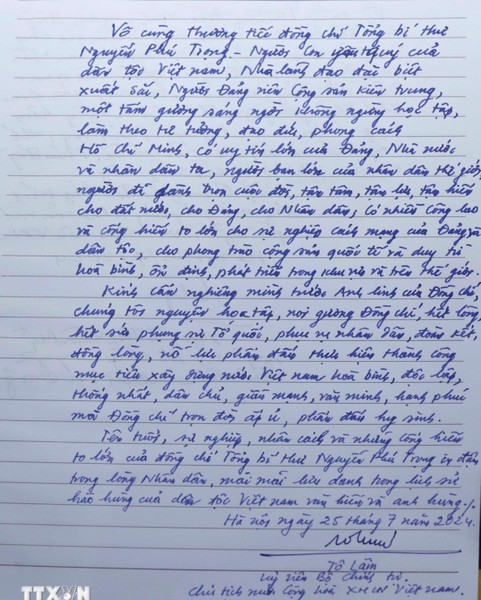 Vô cùng thương tiếc đồng chí Tổng bí thư
Nguyễn Phú Trọng - Người con yêu quý của
dân tộc Việt nam, Nhà lãnh đạo đặc biệt
xuất sắc, Người Đảng viên Cộng sản Kiên trung,
một tấm gương sáng ngời không ngừng học tập,
làm theo tư tưởng, đạo đức, phong cách
Hồ Chí Minh, có uy tín lớn của Đảng, Nhà nước
và nhân dân ta, người bạn lớn của nhân dân thế giới,
người đã dành trọn cuộc đời, tận tâm, tận lực, tận hiến
cho đất nước, cho Đảng, cho Nhân dân; Có nhiều Công lao
và cống hiến to lớn cho sự nghiệp cách mạng của Đảng và
dân tộc, cho phong trào cộng sản quốc tế và duy trì
hoà bình, ổn định, phát triển trong khu vực và trên thế giới.
Kính cẩn nghiêng mình trước Anh linh của Đồng chí,
chúng tôi nguyện học tập, noi gương Đồng chí, hết lòng,
hết sức phụng sự Tổ quốc, phục vụ nhân dân, đoàn kết,
đồng lòng, nỗ lực phấn đấu thực hiện thành công
mục tiêu xây dựng nước Việt nam hoà bình, độc lập,
thống nhất, dân chủ, giàu mạnh, văn minh, hạnh phúc
mà Đồng chí trọn đời ấp ủ, phấn đấu hy sinh.
Tên tuổi, sự nghiệp, nhân cách và những cống hiến
to lớn của đồng chí Tổng bí thư Nguyễn Phú Trọng in đậm
trong lòng Nhân dân, mãi mãi lưu danh trong lịch sử
hào hùng của dân tộc Việt nam văn hiến và anh hùng./.
Hà nội, ngày 25 tháng 7 năm 2024.
Tô Lâm
Uỷ viên Bộ Chính trị.
Chủ tịch nước Cộng hoà XHCN Việt nam.
TTXVN